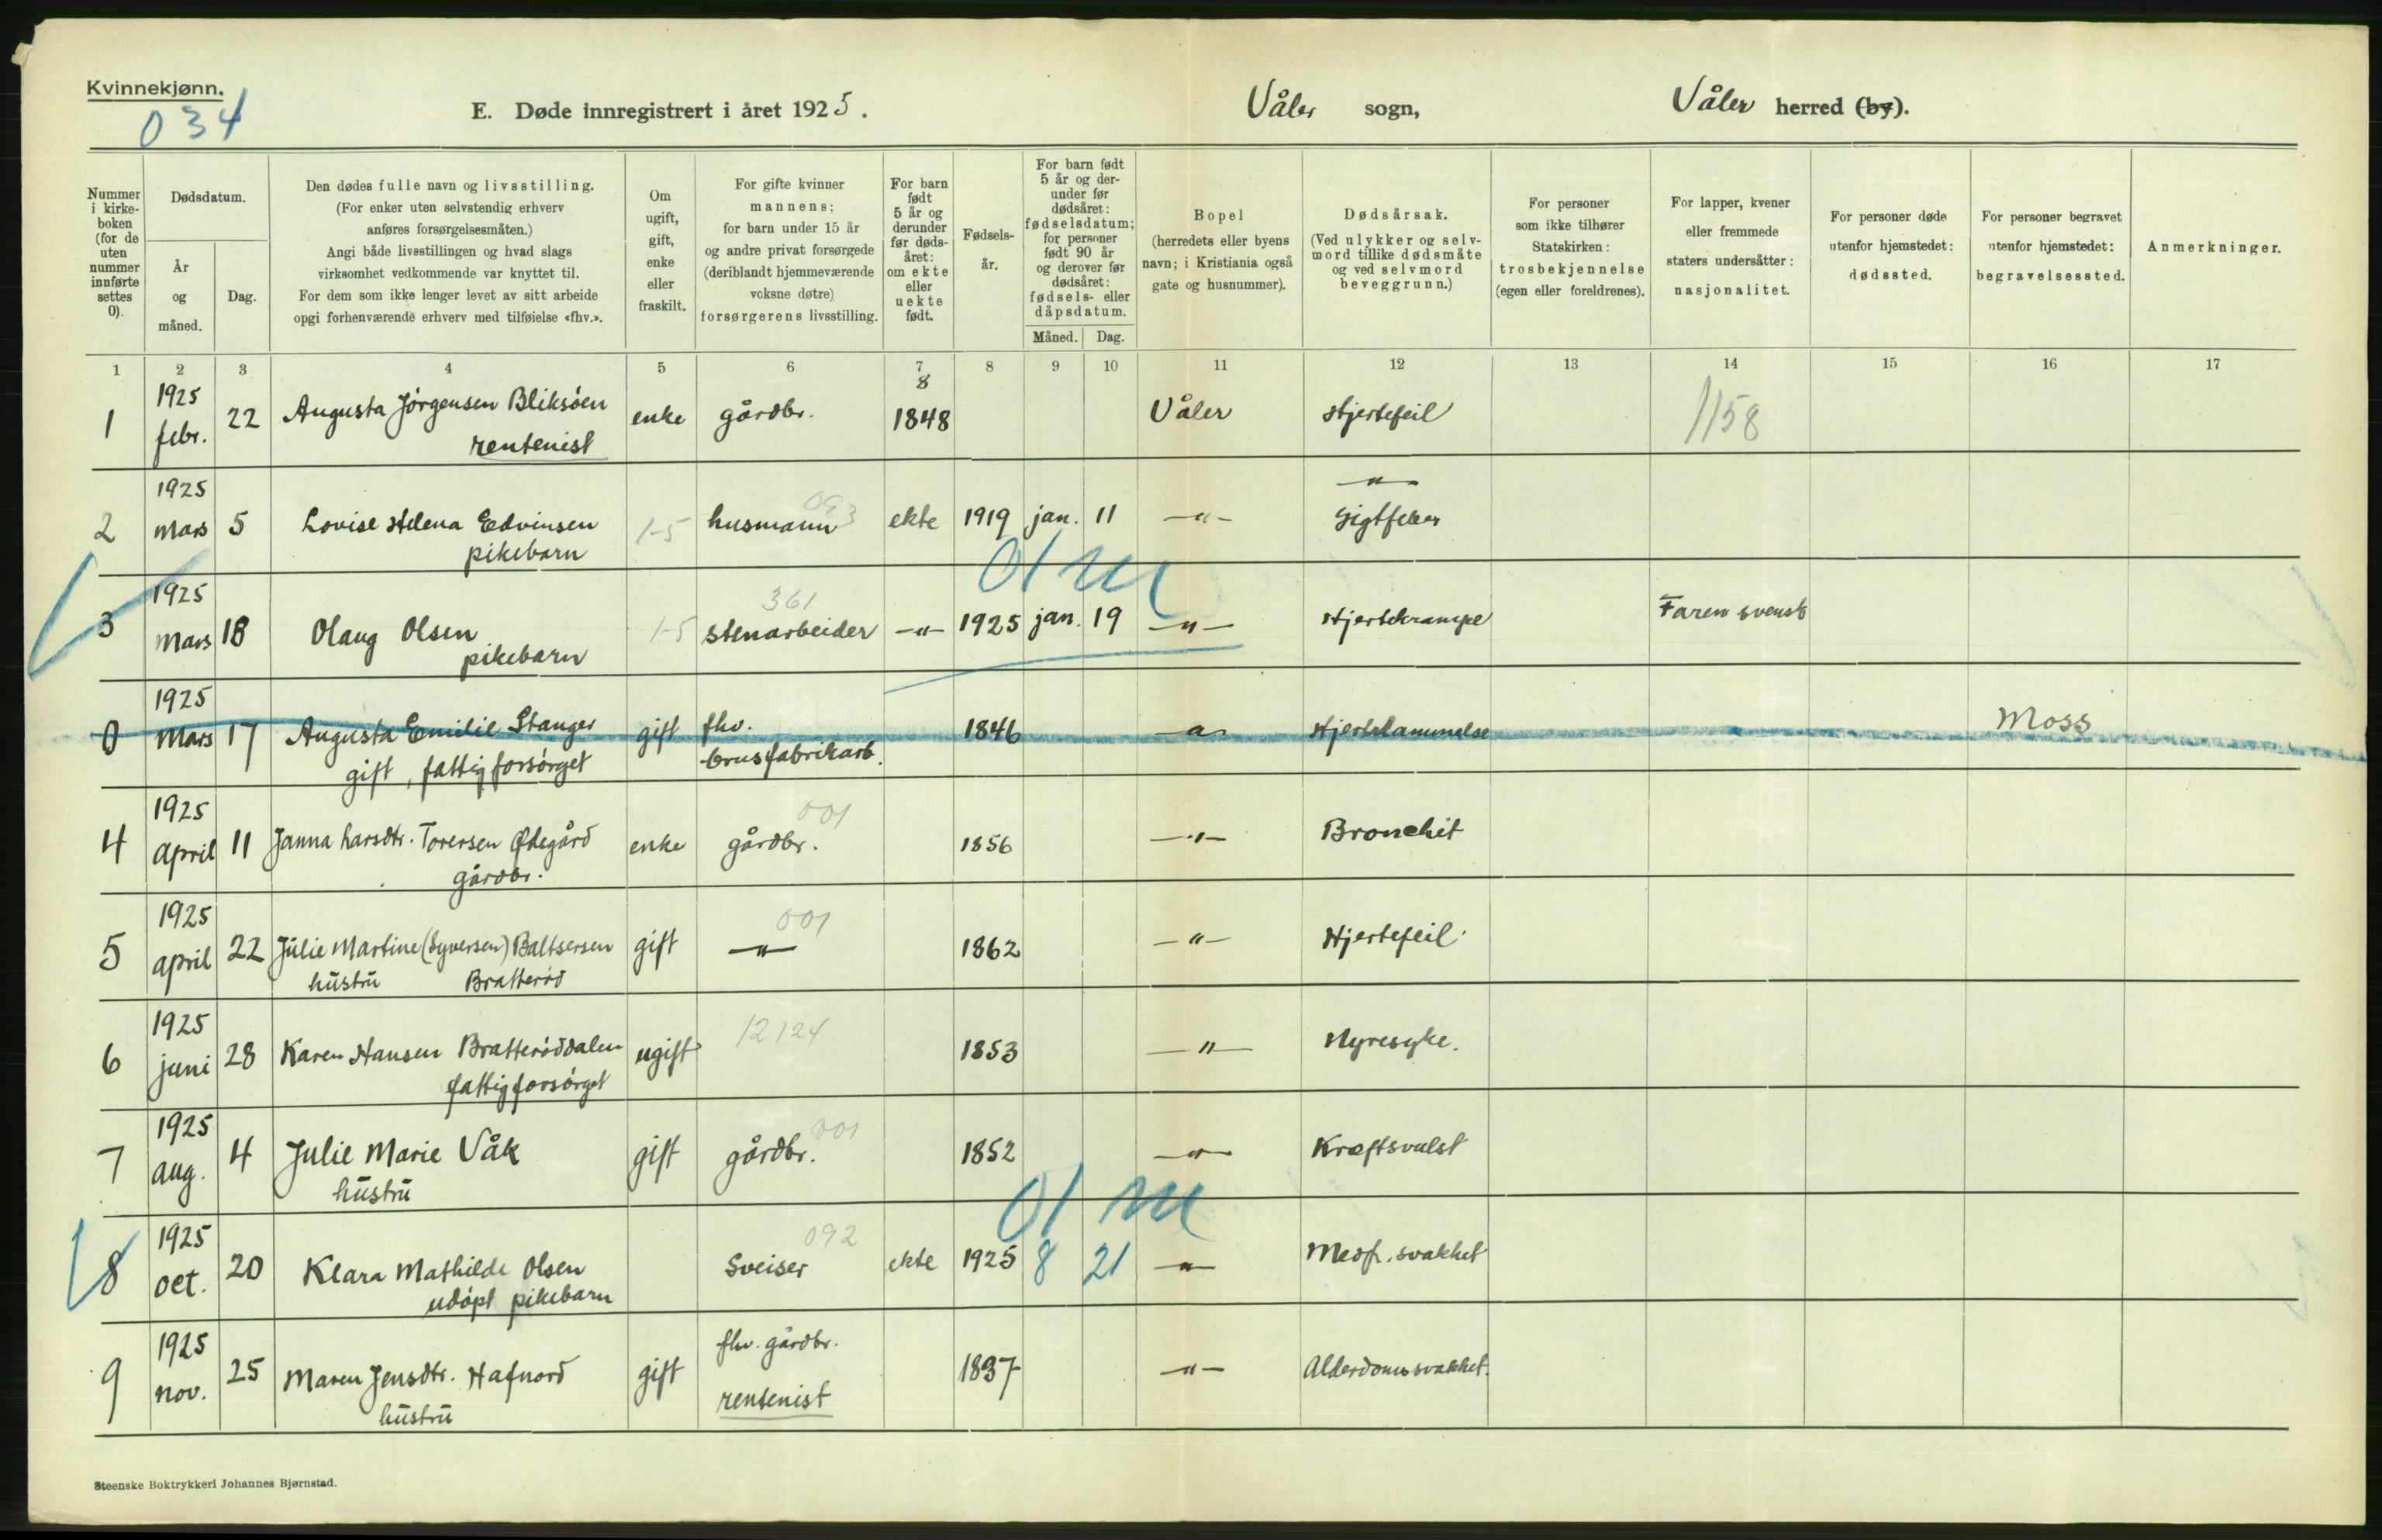 Kvinnekjønn.
034
E. Døde innregistrert i året 1925. Våler sogn, Våler herred (by).
Nummer i kirkeboken (for de uten nummer innførte settes 0).
Dødsdatum.
År og måned.
Dag.
Den dødes fulle navn og livsstilling.
(For enker uten selvstendig erhverv
anføres forsørgelsesmåten.)
Angi både livsstillingen og hvad slags
virksomhet vedkommende var knyttet til.
For dem som ikke lenger levet av sitt arbeide
opgi forhenværende erhverv med tilføielse «fhv.».
Om ugift, gift, enke eller fraskilt.
For gifte kvinner
mannens;
for barn under 15 år
og andre privat forsørgede
(deriblandt hjemmeværende
voksne døtre)
forsørgerens livsstilling.
For barn født 5 år og derunder før dødsåret: om ekte eller uekte født.
Fødselsår.
For barn født 5 år og derunder før dødsåret: fødselsdatum; for personer født 90 år og derover før dødsåret: fødsels- eller dåpsdatum.
Måned. Dag.
Bopel
(herredets eller byens
navn; i Kristiania også
gate og husnummer).
Dødsårsak.
(Ved ulykker og selvmord tillike dødsmåte
og ved selvmord
beveggrunn.)
For personer
som ikke tilhører
Statskirken:
trosbekjennelse
(egen eller foreldrenes).
For lapper, kvener
eller fremmede
staters undersåtter:
nasjonalitet.
For personer døde
utenfor hjemstedet:
dødssted.
For personer begravet
utenfor hjemstedet:
begravelsessted.
Anmerkninger.
1 2 3 4 5 6 7 8 9 10 11 12 13 14 15 16 17
8
1 1925 febr. 22 Augusta Jørgensen Bliksöen enke gårdbr. 1848 Våler Hjertefeil 1158
rentenist
2 1925 Mars 5 Lovise Helena Edvinsen 1-5 husmann 093 ekte 1919 jan. 11 —"— —"— Gigtfeber
pikebarn
01 m
3 1925 Mars 18 Olaug Olsen 1-5 361 stenarbeider —"— 1925 jan. 19 —"— Hjertekrampe Faren svensk
pikebarn
0 1925 Mars 17 Augusta Emilie Stanger gift fhv. brusfabrikarb. 1846 —"— Hjertelammelse Moss
gift, fattigforsørget
4 1925 april 11 Janna Larsdtr. Torersen Ødegård enke gårdbr. 001 1856 —"— Bronchit
gårdbr.
5 1925 april 22 Julie Martine (Syversen) Baltsersen gift —"— 001 1862 —"— Hjertefeil.
hustru Bratterød
6 1925 juni 28 Karen Hansen Bratterøddalen ugift 12124 1853 —"— Nyresyke.
fattigforsørget
7 1925 aug. 4 Julie Marie Våk gift gårdbr. 001 1852 —"— Kræftsvulst
hustru
01 m
8 1925 oct. 20 Klara Mathilde Olsen Sveiser 092 ekte 1925 8 21 —"— Medf. svakhet
udöpt pikebarn
9 1925 nov. 25 Maren Jensdtr. Hafnord gift fhv. gårdbr. rentenist 1837 —"— Alderdomssvakhet.
hustru
Steenske Boktrykkeri Johannes Bjørnstad.